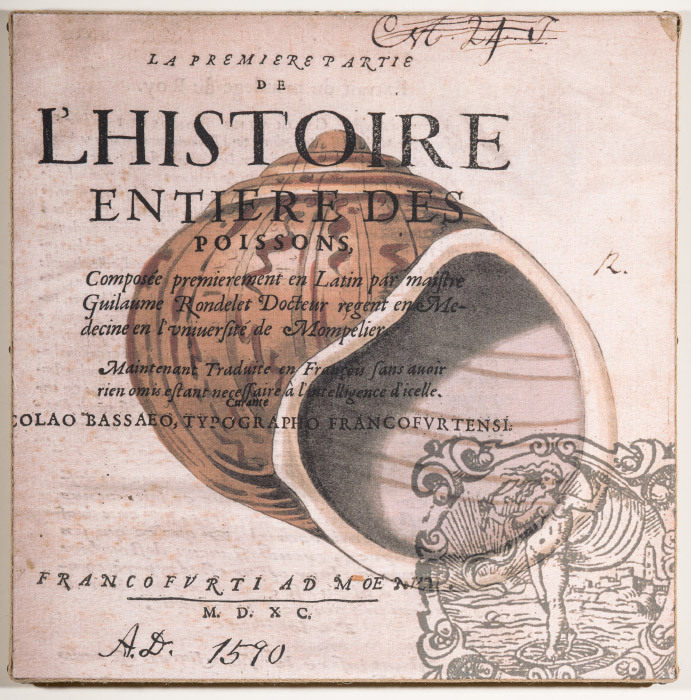 LA PREMIERE PARTIE
DE
L'HISTOIRE
ENTIERE DES
POISSONS,
Composée premierement en Latin par maiſtre
Guilaume Rondelet Docteur regent en Me-
decine en l'vniuerſité de Mompelier
12.
Maintenant Traduite en François ſans auoir
rien omis eſtant neceſſaire à l'intelligence d'icelle.
Curante
COLAO BASSAEO, TYPOGRAPHO FRANCOFVRTENSI.
FRANCOFVRTI AD MOENUM.
M. D. XC.
A.D. 1590